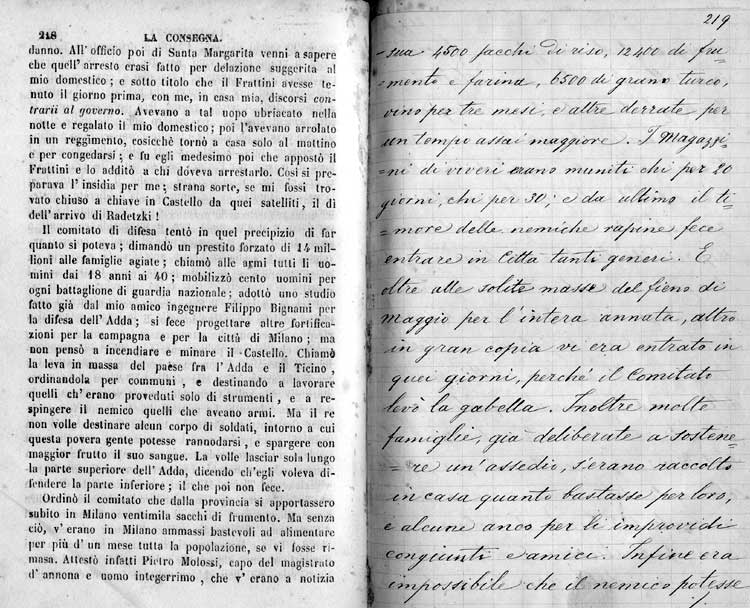 218
LA CONSEGNA.
danno. All'officio poi di Santa Margarita venni a sapere
che quell'arresto erasi fatto per delazione suggerita al
mio domestico; e sotto titolo che il Frattini avesse te-
nuto il giorno prima, con me, in casa mia, discorsi con-
trarii al governo. Avevano a tal uopo ubriacato nella
notte e regalato il mio domestico; poi l'avevano arrolato
in un reggimento, cosicchè tornò a casa solo al mattino
e per congedarsi; e fu egli medesimo poi che appostò il
Frattini e lo additò a chi doveva arrestarlo. Così si pre-
parava l'insidia per me; strana sorte, se mi fossi tro-
vato chiuso a chiave in Castello da quei satelliti, il dì
dell'arrivo di Radetzki!
Il comitato di difesa tentò in quel precipizio di far
quanto si poteva; dimandò un prestito forzato di 14 mil-
lioni alle famiglie agiate; chiamò alle armi tutti li uo-
mini dai 18 anni ai 40; mobilizzò cento uomini per
ogni battaglione di guardia nazionale; adottò uno studio
fatto già dal mio amico ingegnere Filippo Bignami per
la difesa dell'Adda; si fece progettare altre fortifica-
zioni per la campagna e per la città di Milano; ma
non pensò a incendiare e minare il Castello. Chiamò
la leva in massa del paese fra l'Adda e il Ticino,
ordinandola per communi, e destinando a lavorare
quelli ch'erano proveduti solo di strumenti, e a re-
spingere il nemico quelli che aveano armi. Ma il re
non volle destinare alcun corpo di soldati, intorno a cui
questa povera gente potesse rannodarsi, e spargere con
maggior frutto il suo sangue. La volle lasciar sola lungo
la parte superiore dell'Adda, dicendo ch'egli voleva di-
fendere la parte inferiore; il che poi non fece.
Ordinò il comitato che dalla provincia si apportassero
subito in Milano ventimila sacchi di frumento. Ma senza
ciò, v'erano in Milano ammassi bastevoli ad alimentare
per più d'un mese tutta la popolazione, se vi fosse ri-
masa. Attestò infatti Pietro Molossi, capo del magistrato
d'annona e uomo integerrimo, che v'erano a notizia
219
=sua 4500 sacchi di riso, 12400 di fru=
=mento e farina, 6500 di grano turco,
vino per tre mesi, e altre derrate per
un tempo assai maggiore. I Magazzi=
=ni di viveri erano muniti chi per 20
giorni, chi per 30; e da ultimo il ti=
=more delle nemiche rapine fece
entrare in Città tanti generi. E
oltre alle solite masse del fieno di
Maggio per l'intera annata, altro
in gran copia vi era entrato in
quei giorni, perché il Comitato
levò la gabella. Inoltre molte
famiglie, già deliberate a sostene=
=re un'assedio, s'erano raccolto
in casa quanto bastasse per loro,
e alcune anco per li improvidi
congiunti e amici. Infine era
impossibile che il nemico potesse